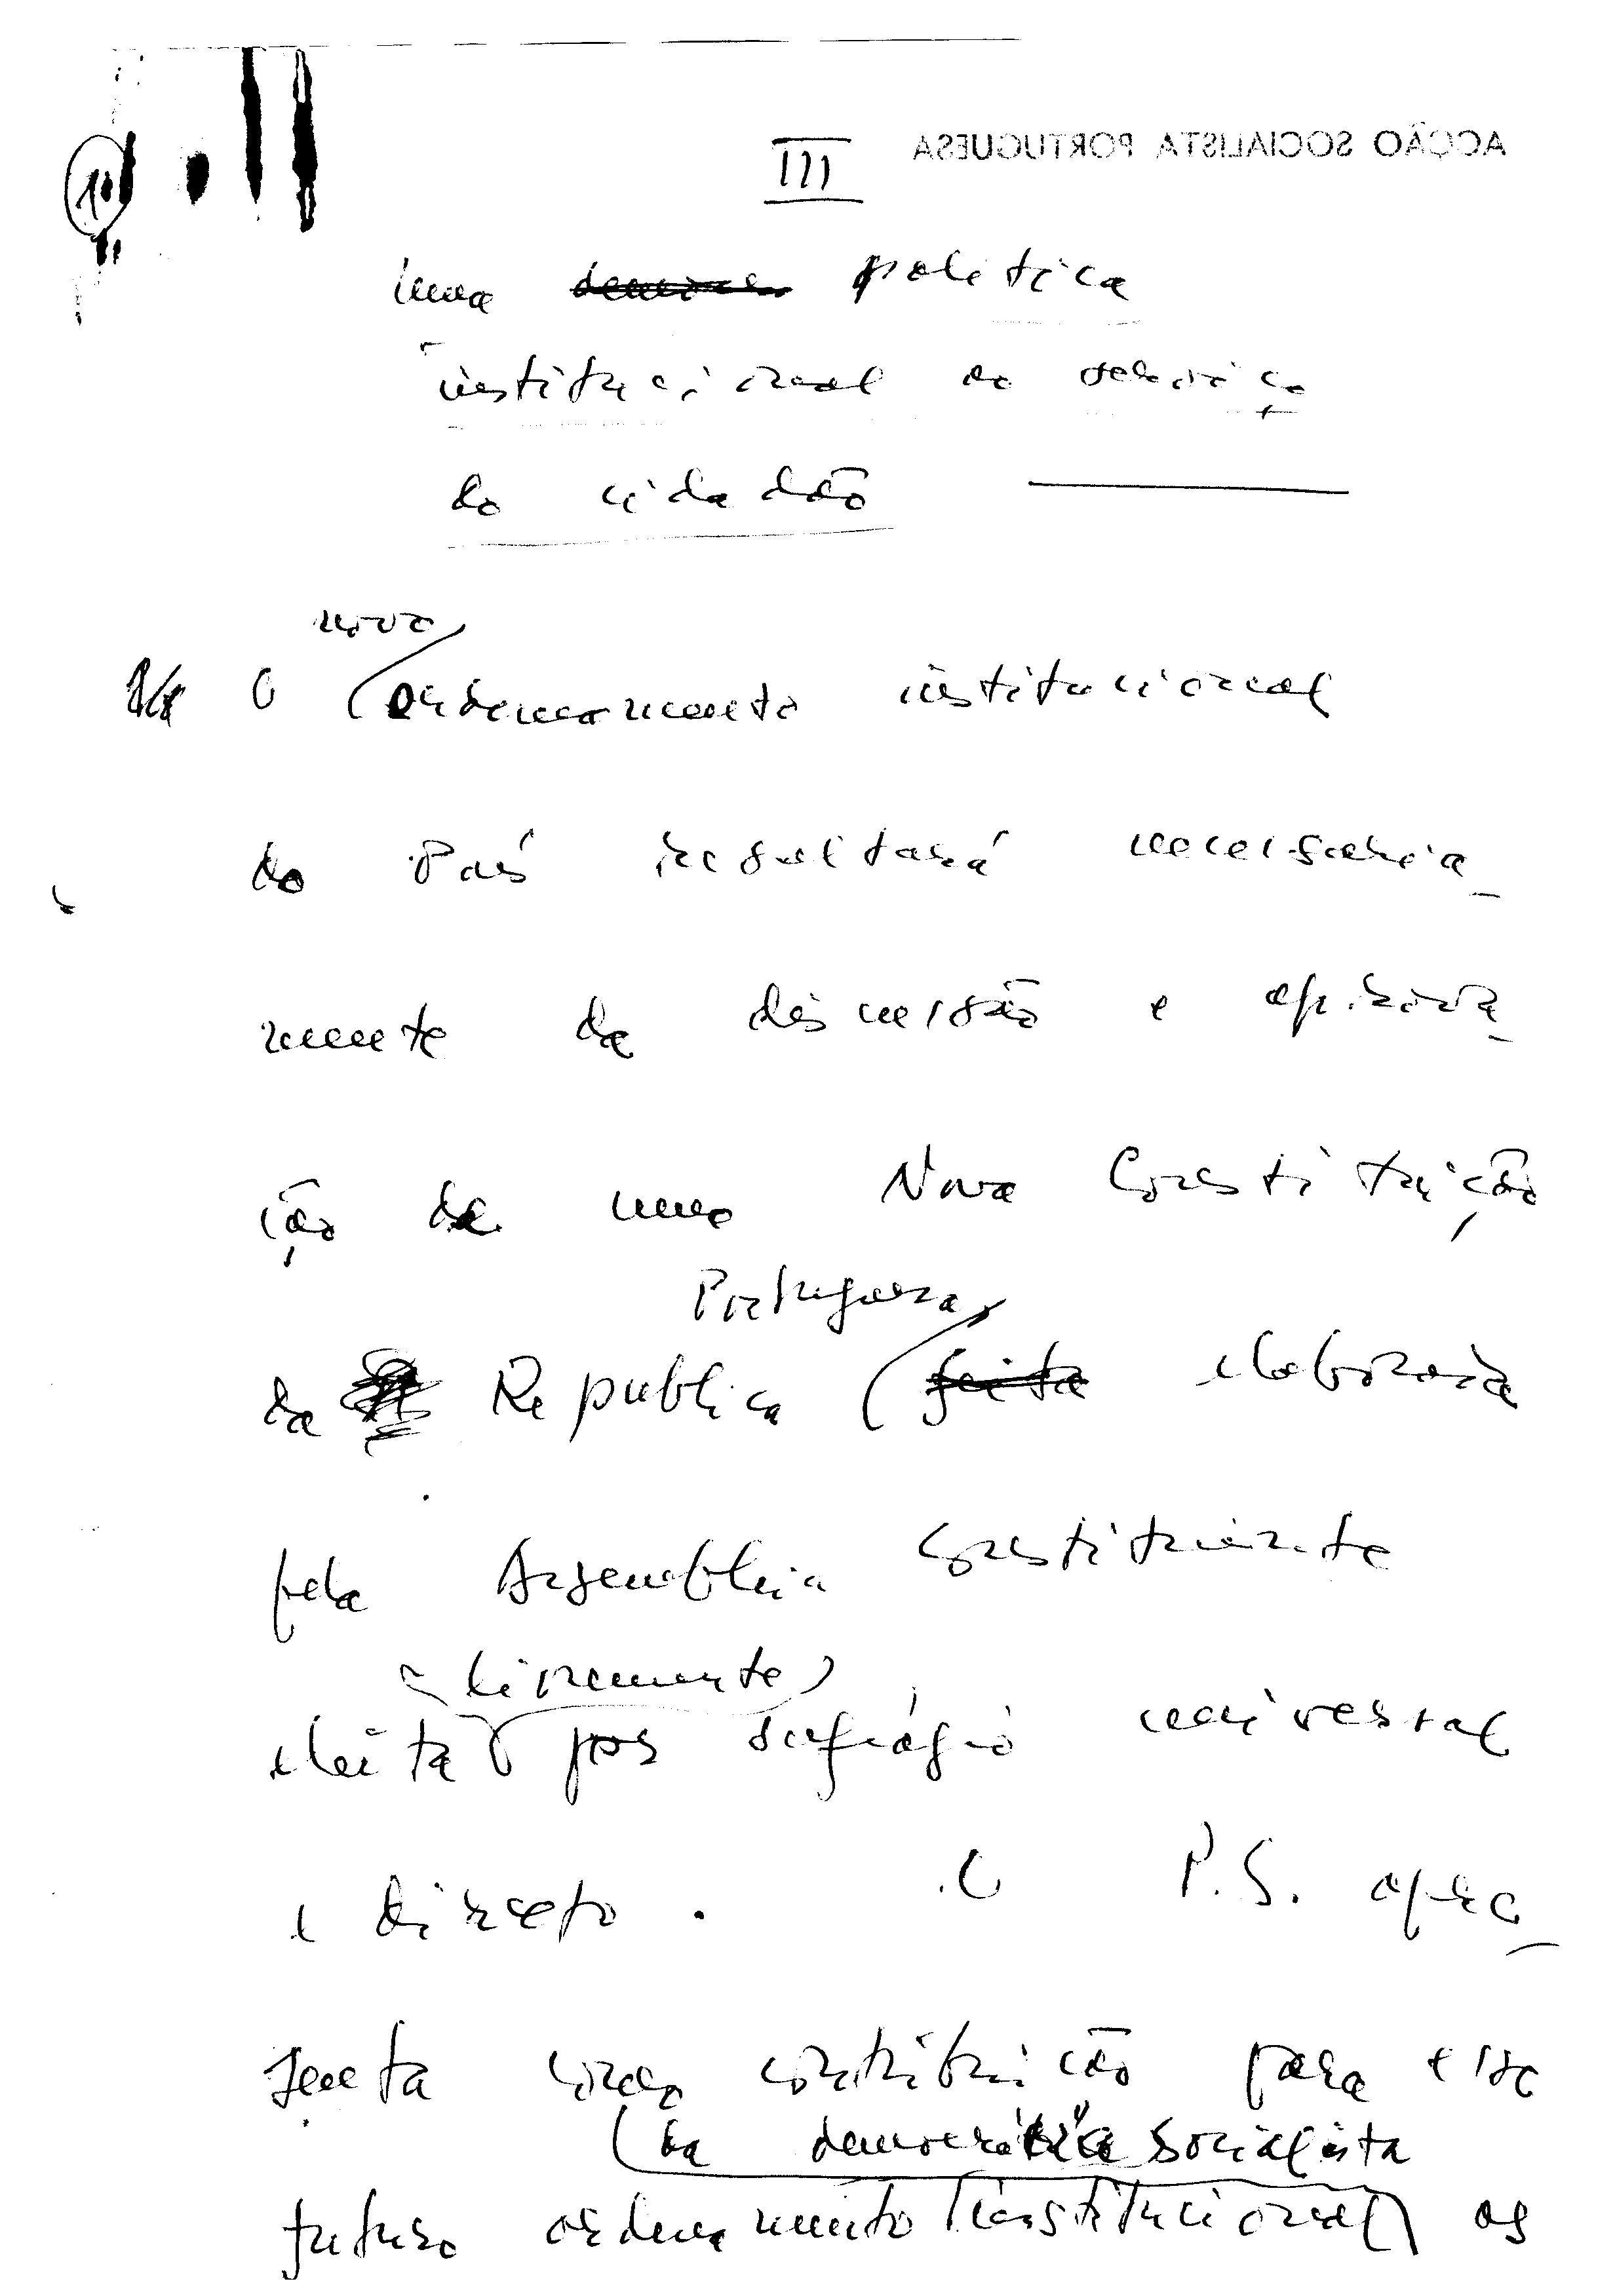 ACÇÃO SOCIALISTA PORTUGUESA
10
III
uma politica
institucional ao serviço
do cidadão
novo
O ordenamento institucional
do País resultará necessaria_
mente da discussão e aprova_
ção de uma Nova Constituição
Portuguesa,
da Republica feita elaborada
pela Assembleia Constituinte
(livremente)
eleita por sufrágio universal
e directo. O P.S. apre_
senta como contribuição para esse
da democracia socialista
futuro ordenamento institucional os